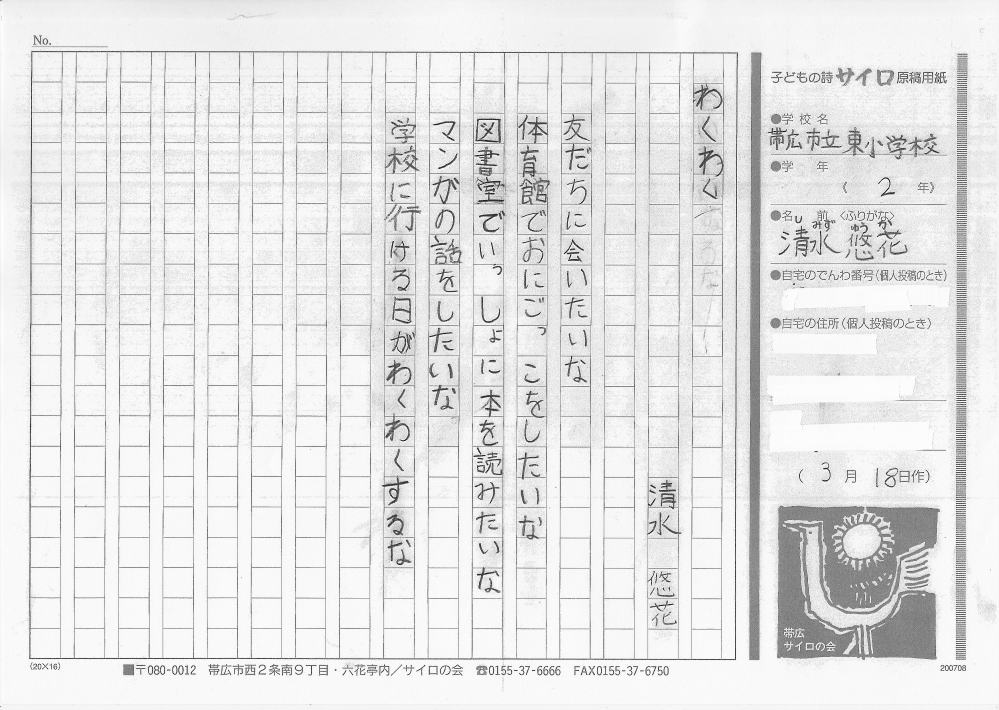 No.
わくわく
清水 悠花
友だちに会いたいな
体育館でおにごっこをしたいな
図書室でいっしょに本を読みたいな
マンガの話をしたいな
学校に行ける日がわくわくするな
子どもの詩サイロ原稿用紙
●学校名
帯広市立東小学校
●学年
〈 2 年〉
●名前〈ふりがな〉
しみず ゆうか
清水 悠花
●自宅のでんわ番号(個人投稿のとき)
●自宅の住所(個人投稿のとき)
( 3 月 18日作)
帯広
サイロの会
(20×16)
■〒080-0012 帯広市西2条南9丁目・六花亭内/サイロの会 ☎0155-37-6666 FAX0155-37-6750
200708